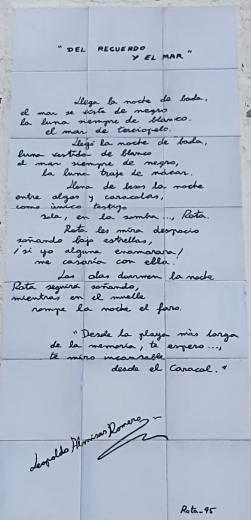 "DEL RECUERDO
Y EL MAR"
Llega la noche de boda,
el mar se viste de negro
la luna siempre de blanco.
el mar de terciopelo.
Llegó la noche de boda,
luna vestida de blanco
el mar siempre de negro,
la luna traje de nácar.
llena de besos la noche
entre algas y caracolas,
como único testigo
sola, en la sombra..., Rota.
Rota les mira despacio
soñando bajo estrellas,
¡si yo alguna enamorara!
me casaría con ella!
Las olas duermen la noche
Rota seguirá soñando,
mientras en el muelle
rompe la noche el faro.
"Desde la playa más larga
de la memoria, te espero...,
te miro incansable
desde el Caracol."
Leopoldo Almisas Romero
Rota_95